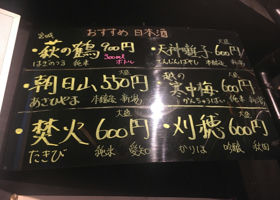 おすすめ 日本酒
宮城
・萩の鶴 900円
はぎのつる 純米 300ml ボトル
大盛
・天神囃子 600円
てんじんばやし 本醸造 新潟
大盛
・朝日山 550円
あさひやま 本醸造 新潟
越の 大盛
・寒中梅 600円
かんちゅうばい 新潟
大盛
・焚火 600円
たきび 純米 愛知
大盛
・刈穂 600円
かりほ 吟醸 秋田